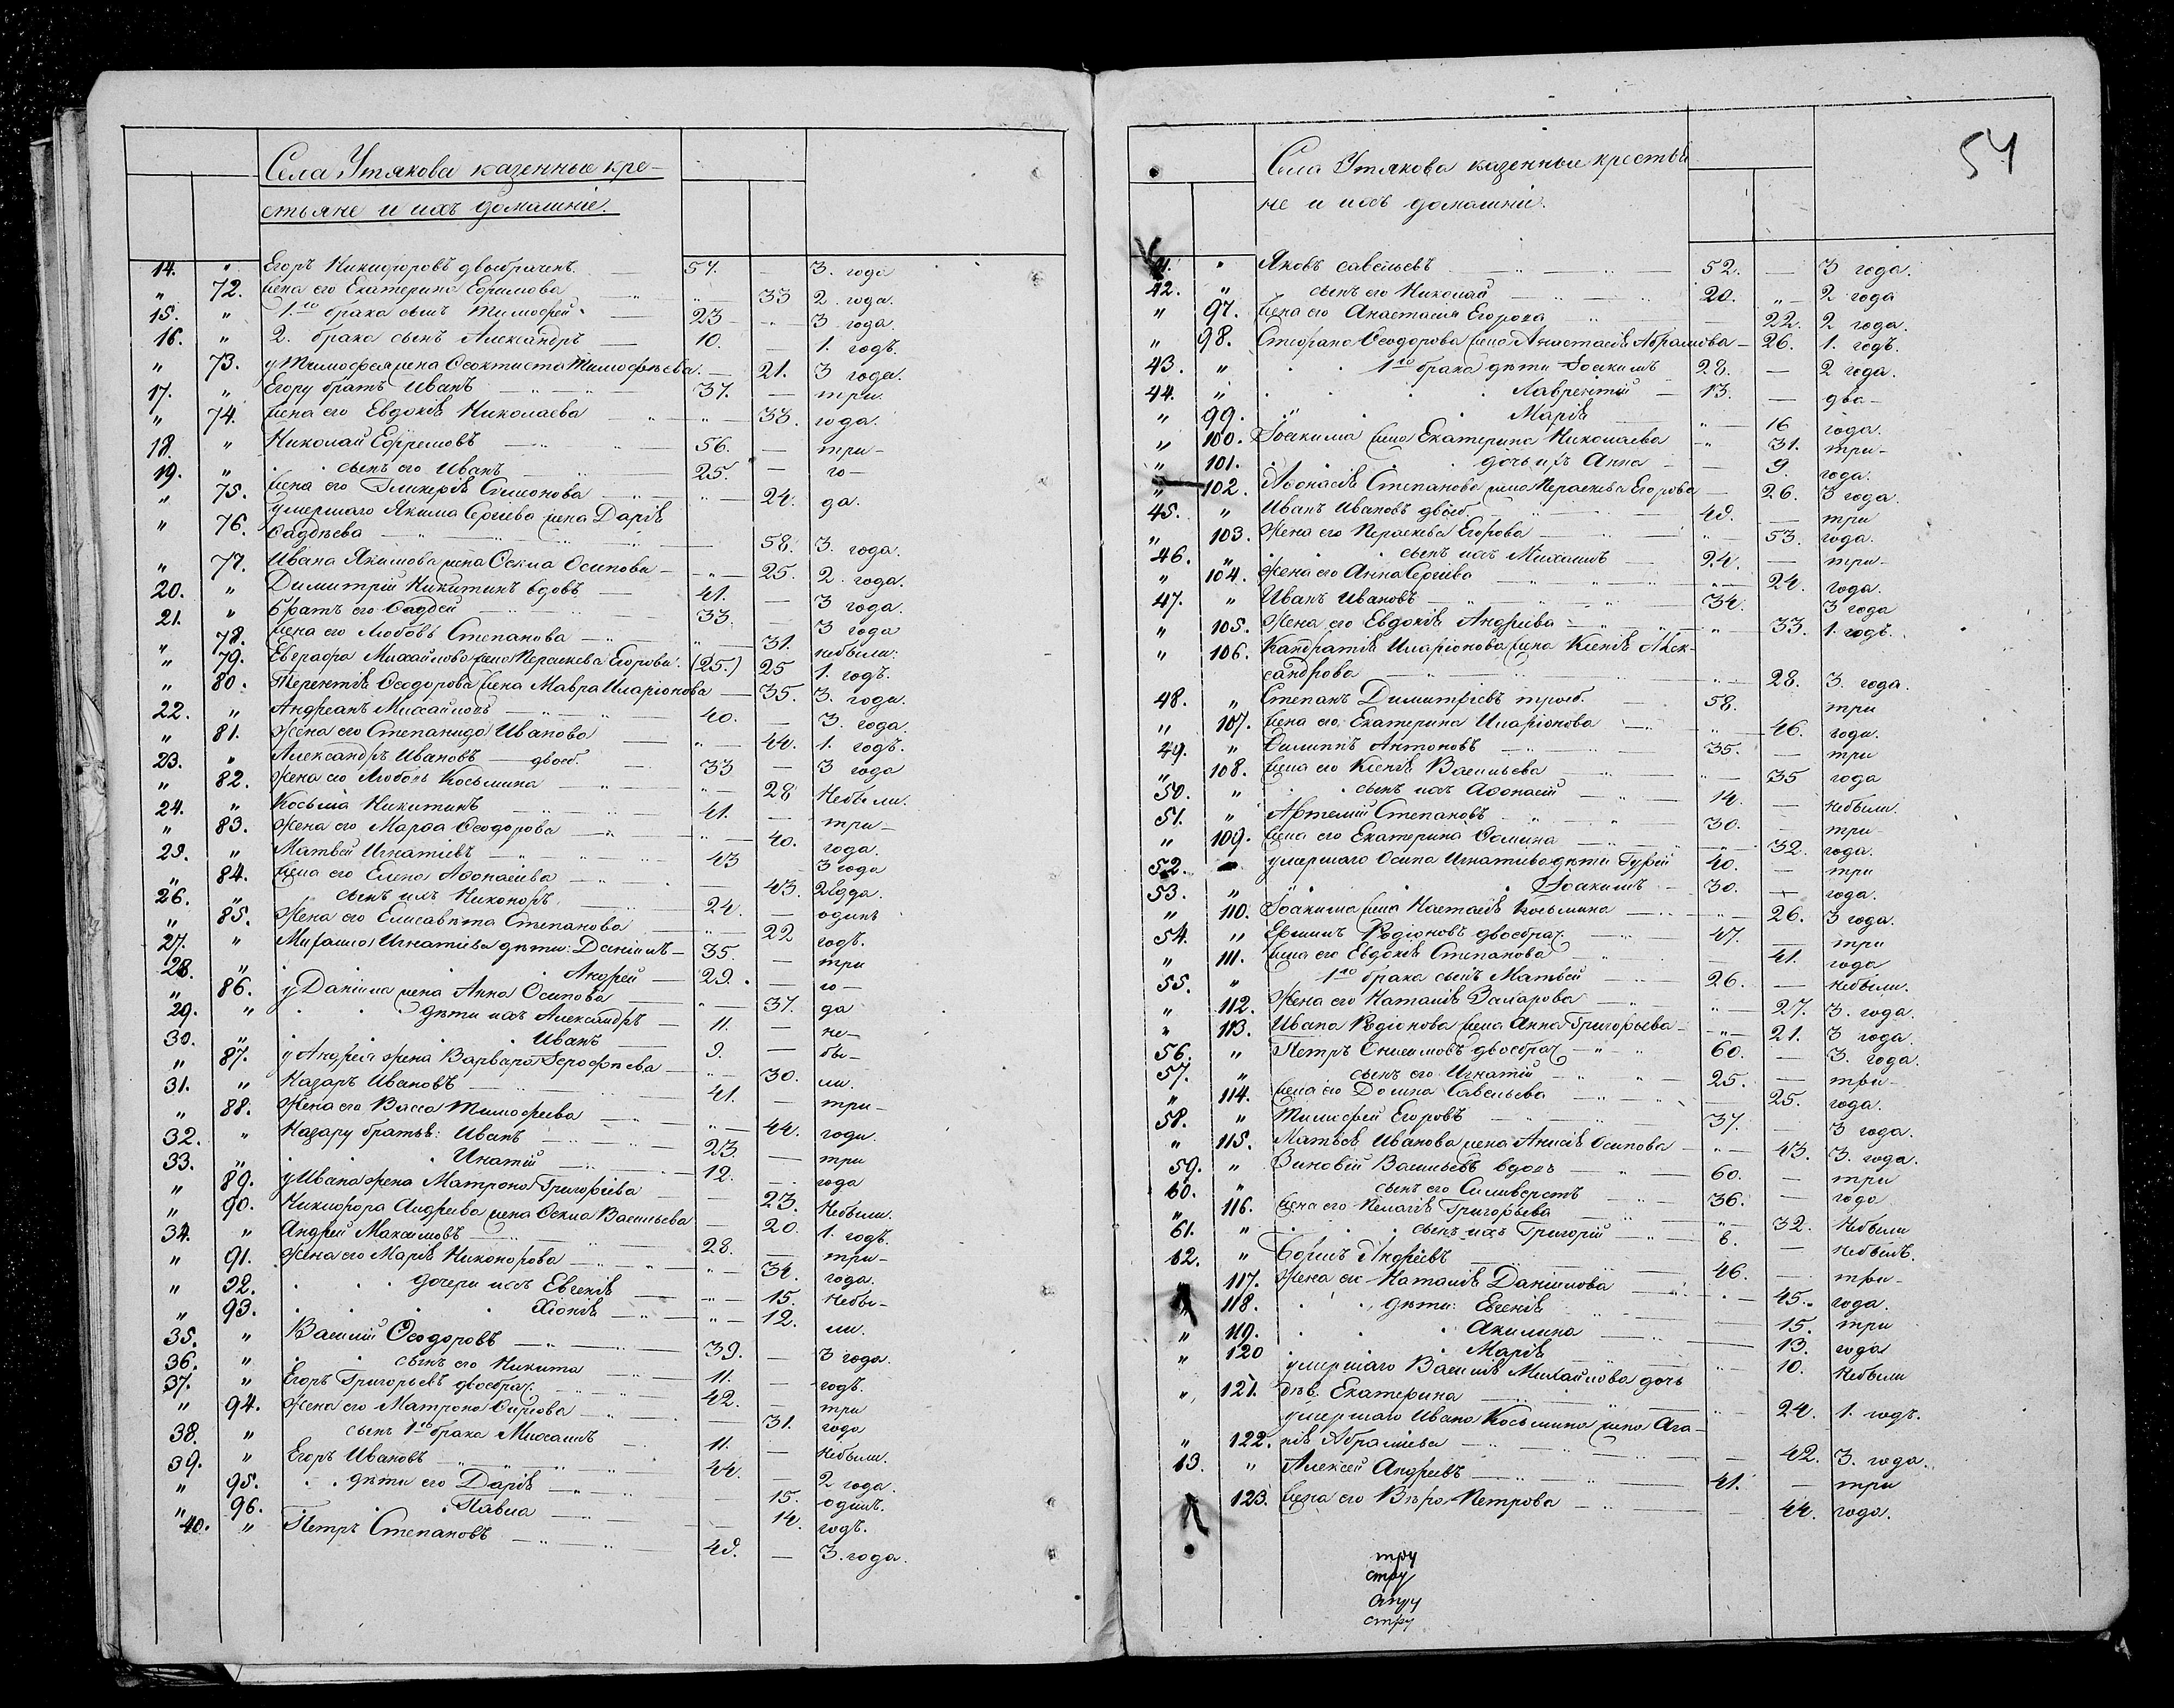 Села Утякова казенные кре-
стьяне и ихъ домашнiе.
14. " Егоръ Никифоровъ двоебрачен. 57. — 3. года
" 72. жена его Екатерина Ефимова " — 33 2. года.
15. " 1го брака сынъ Тимофей 23 — 3 года.
16. " 2. брака сынъ Александръ 10. — 1. годъ.
" 73. у Тимофея жена Феоктиста Тимофѣева — 21. 3 года.
17. " Егору братъ Иванъ 37. — три.
" 74. жена его Евдокiя Николаева " — 38. года.
18. " Николай Ефремовъ 56. — три-
19. " сынъ его Иванъ 25. — го-
" 75. жена его Гликерiя Симеонова " — 24. да.
умершаго Якима Сергиева жена Дарiя
" 76. Фаддѣева — 58. 3. года.
" 77. Ивана Якимова жена Фекла Осипова " — 25. 2. года.
20. " Димитрiй Никитинъ вдовъ 41. — 3 года.
21. " братъ его Фаддей 33. — 3 года
" 78. жена его Любовь Степанова " — 31. небыли.
" 79. Евграфа Михайлова жена Параскева Егорова (25.) 25 1. годъ.
" 80. Терентiя Феодорова жена Мавра Иларiонова — 35. 3. года.
22. " Андреанъ Михайловъ 40. — 3. года.
" 81. Жена его Степанида Иванова " — 44. 1. годъ.
23. " Александръ Ивановъ — двоеб. 33 — 3 года
" 82. жена его Любовь Косьмина " — 28 Небыли.
24. " Косьма Никитинъ 41. — три-
" 83. Жена его Марфа Феодорова " — 40. года.
25. " Матвей Игнатiевъ 43 3 года
" 84. жена его Елена Афонасиева — 43. 2 года.
26. " сынъ ихъ Никоноръ 24. — одинъ
" 85. Жена его Елисавѣта Степанова — 22 годъ.
27. " Михаила Игнатiева дѣти: Данiилъ — 35. — три
28. " Андрей — 29. — го-
" 86. у Данiила жена Анна Осипова " — 37. да
29. " дѣти ихъ Александръ — 11. — не-
30. " Иванъ 9. — бы-
" 87. у Андрея жена Варвара Ѳерофѣева " — 30. ли.
31. " Назаръ Ивановъ 41. — три-
" 88. Жена его Васса Тимофеева " — 44. года.
32. " Назару братья: Иванъ 23. — три
33. " Игнатiй 12. — года
" 89. у Ивана жена Матрона Григорiева — 23. Небыли.
" 90. Никифора Андреева жена Фекла Васильева — 20. 1. годъ.
34. " Андрей Максимовъ 28. — три-
" 91. Жена его Марiя Никонорова " — 34. года.
" 92. дочери ихъ Евгенiя " — 15. Небы-
" 93. Хiонiя " — 12. ли.
35. " Василий Феодоровъ 39. — 3 года.
36. " сынъ его Никита 11. — годъ.
37. " Егоръ Григорьевъ двоебрач. 42. — три
" 94. Жена его Матрона — 31. года
38. " сынъ 1го брака Михаилъ 11. — Небыли.
39. " Егоръ Ивановъ 44. — 2 года.
" 95. дѣти его Дарiя — 15. одинъ.
" 96. Павла — 14. годъ.
40. " Петръ Степановъ 48. — 3. года.
54
Села Утякова казенные крестья
не и ихъ домашнiи.
41. " Яковъ Савельевъ 52. — 3 года.
42. " сынъ его Николай 20. " — 2 года
" 97. жена его Анастасiя Егорова — 22. 2 года.
" 98. Стефана Феодорова жена Анастасiя Абрамова — 26. 1. годъ.
43. " 1го брака дѣти Iоакимъ 28. — 2 года.
44. " Лаврентий — 13. — два-
" 99. Марiя " — 16 года.
" 100. Iоакима жена Екатерина Николаева " 31. три-
" 101. дочь ихъ Анна — 9. года.
" 102. Афонасiя Степанова жена Параскева Егорова — 26. 3 года.
45. " Иванъ Ивановъ двоеб. 48. — три
" 103. Жена его Параскева Егорова " — 53. года.
46. " сынъ ихъ Михаилъ 24. — три-
" 104. Жена его Анна Сергиева " — 24. года.
47. " Иванъ Ивановъ 34. 3 года
" 105. Жена его Евдокiя Андреева " 33. 1. годъ.
" 106. Кандратiя Иларiонова жена Ксенiя Алек-
сандрова " — 28. 3. года.
48. " Степанъ Димитрiевъ троеб. 58. три
" 107. жена его Екатерина Иларiонова " — 46. года.
49. " Филиппъ Антоновъ 35. — три
" 108. жена его Ксенiя Васильева " — 35 года
50. " сынъ ихъ Афонасiй 14. — Небыли.
51. " Артемий Степановъ 30. — три
" 109. жена его Екатерина Фомина " — 32. года.
52. умершаго Осипа Игнатиева дѣти Гурiй 40. — три
53. " Iоакимъ — 30. — года.
" 110. Iоакима жена Настасiя Косьмина " — 26. 3 года.
54. " Ефимъ Родiоновъ двоебрач. 47. — три
" 111. жена его Евдокiя Степанова — 41. года
55. " 1го брака сынъ Матвей 26. — Небыли.
" 112. Жена его Наталiя Захарова " — 27. 3. года.
" 113. Ивана Родiонова жена Анна Григорьева " — 21. 3 года.
56. " Петръ Онисимовъ двоебрач. 60. — 3. года.
57. " сынъ его Игнатiй 25. — три-
" 114. жена его Домна Савельева — 25. года.
58. " Тимофей Егоровъ 37. — 3 года.
" 115. Матвея Иванова жена Анисiя Осипова " — 43. 3. года.
59. " Зиновiй Васильевъ вдовъ 60. — три
60. " сынъ его Сильверстъ 36. — года
" 116. жена его Пелагiя Григорьева " — 32. Небыли
61. " сынъ ихъ Григорiй 8. — Небылъ.
62. " Андреевъ 46. — три-
" 117. Жена его Наталiя Данiилова " — 45. года.
" 118. дѣти: Евгенiя — 15. три
" 119. Акилина — 13. года
" 120 Марiя " — 10. Небыли
умершаго Василiя Михайлова дочь
" 121. дѣв. Екатерина " — 24. 1. годъ.
умершаго Ивана Косьмина жена Ага-
" 122. пiя Абрамиева — 42. 3. года.
63. " Алексей Андреевъ 41. — три
123. жена его Вѣра Петрова — 44. года.
тру
стру
стру